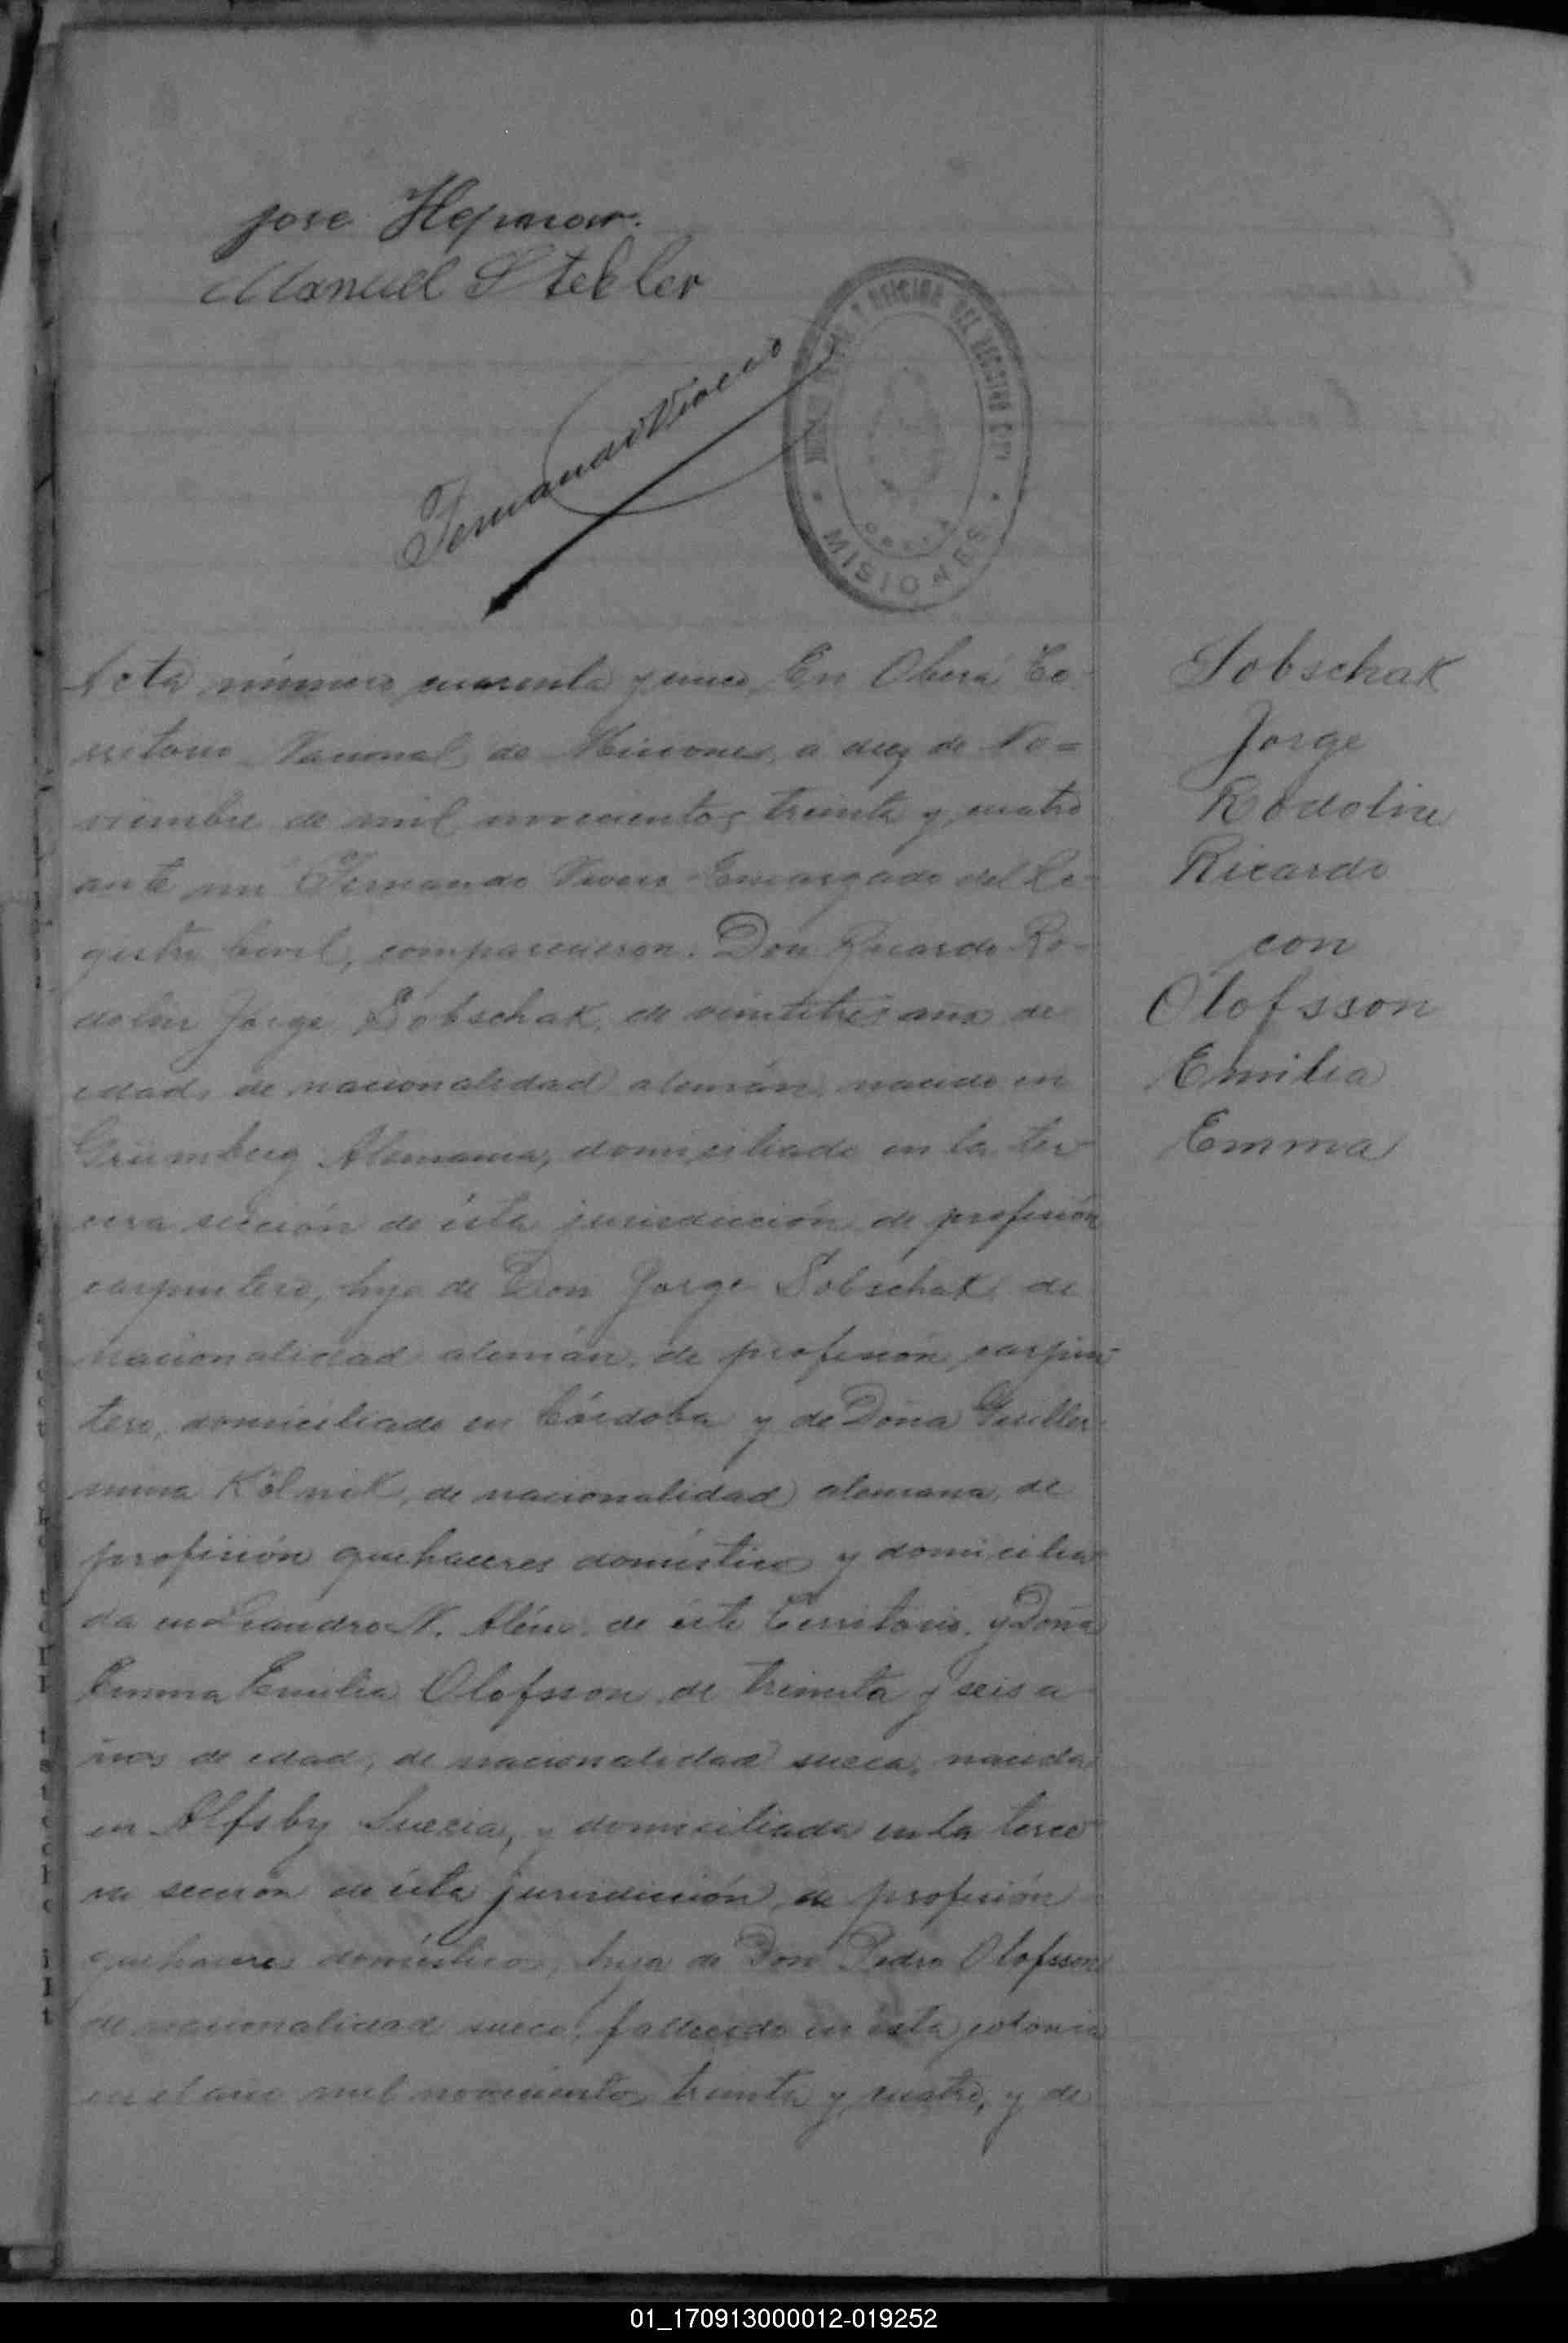 Jose
Manuel Stekler
Fernando
Y OFICINA DEL REGISTRO CIVIL
OBERA
MISIONES
Acta número cuarenta y cinco, En Oberá Te-
rritorio Nacional de Misiones, a diez de No=
viembre de mil novecientos treinta y cuatro
ante mi Fernando Encargado del Re-
gistro Civil, comparecieron: Don Ricardo Ro-
dolin Jorge Sobschak, de veintitres años de
edad, de nacionalidad alemán, nacido en
Grümberg Alemania, domiciliado en la ter-
cera sección de ésta jurisdicción de profesión
carpintero, hijo de Don Jorge Sobschak, de
nacionalidad alemán, de profesión carpin-
tero, domiciliado en Córdoba y de Doña Guiller-
mina Kölnik, de nacionalidad alemana, de
profesión quehaceres domésticos y domicilia-
da en Leandro N. Além, de éste Territorio, y Doña
Emma Emilia Olofsson de treinta y seis a-
ños de edad, de nacionalidad sueca, nacida
en Alfsby Suecia, y domiciliada en la terce-
ra sección de ésta jurisdicción, de profesión
quehaceres domésticos, hija de Don Pedro Olofsson
de nacionalidad sueco, fallecido en ésta colonia
en el año mil novecientos treinta y cuatro, y de
Sobschak
Jorge
Rodolin
Ricardo
con
Olofsson
Emilia
Emma
01_170913000012-019252